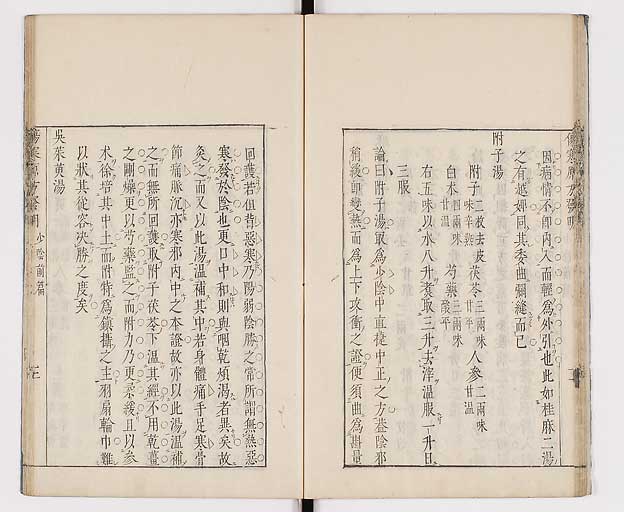 因病情不卽內入而輕爲外引也此如桂麻二湯
之有越婢同其委曲彌縫而已
附子湯
附子二枚去皮味辛熱 茯苓三兩味甘平 人參二兩味甘溫
白朮四兩味甘溫 芍藥三兩味酸平
右五味以水八升煑取三升去滓溫服一升日
三服
論曰附子湯㝡爲少陰中直捷中正之方葢陰邪
稍緩卽變熱而爲上下攻衝之證便須曲爲斟量
回護若但背惡寒乃陽弱陰勝之常所謂無熱惡
寒發於陰也更口中和則與咽乾煩渴者異矣故
灸之而又以此湯溫補其中若身體痛手足寒骨
節痛脈沉亦寒邪內中之本證故亦以此湯溫補
之而無所回護取附子茯苓下溫其經不用乾薑
之剛燥更以芍藥監之而附力乃更柔緩且以參
朮徐培其中土而附特爲鎮攝之主羽扇輪巾難
以狀其從容決勝之度矣
吳茱萸湯
少陰前篇